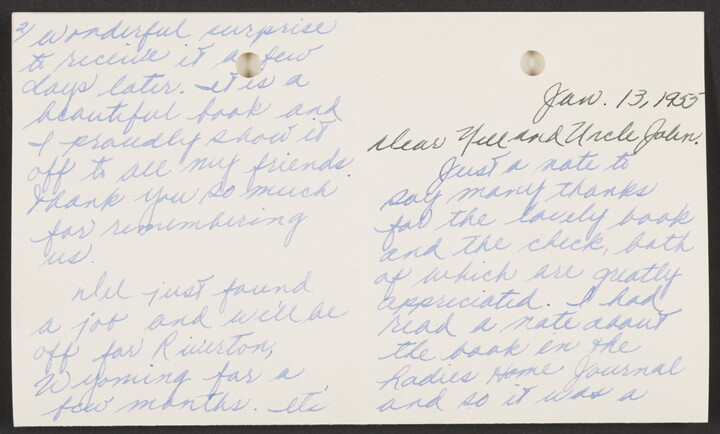 Jan. 13, 1955
Dear Nell and Uncle John.
Just a note to
say many thanks
for the lovely book
and the check, both
of which are greatly
appreciated. I had
read a note about
the book in the
Ladies Home Journal
and so it was a
2)
wonderful surprise
to receive it a few
days later. It is a
beautiful book and
I proudly show it
off to all my friends.
Thank you so much
for remembering
us.
just found
a job and we'll be
off for Riverton,
Wyoming for a
few months. It's